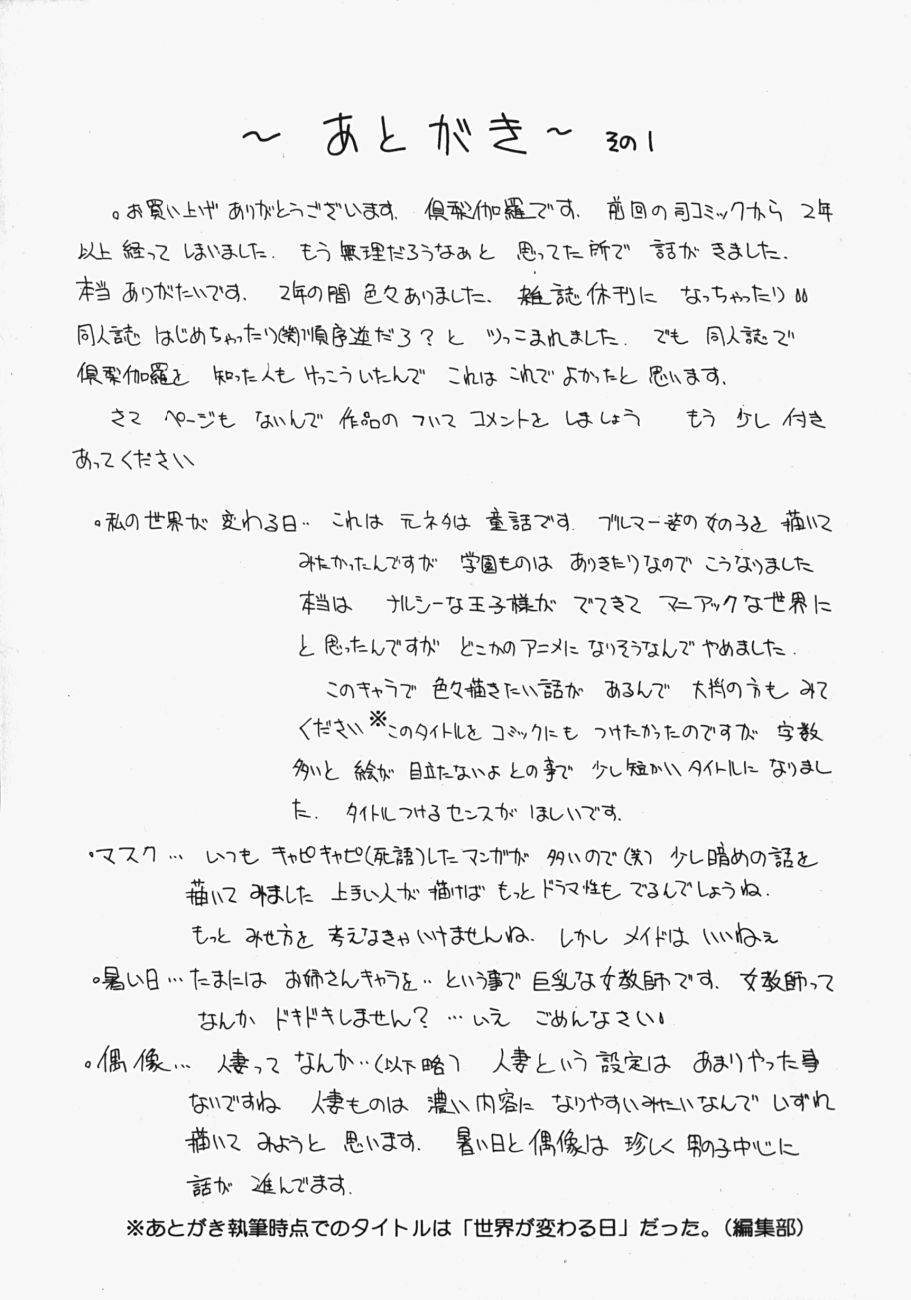 ～ あとがき～ その1
。お買い上げ ありがとうございます. 倶梨伽羅です. 前回の司コミックから 2年
以上 経って しまいました. もう無理だろうなぁと 思ってた所で 話が きました.
本当 ありがたいです. 2年の間 色々ありました. 雑誌休刊に なっちゃったり
同人誌 はじめちゃったり(笑)順序逆だろ?と ツッこまれました. でも 同人誌で
倶梨伽羅を 知った人も けっこういたんで これは これで よかったと 思います.
さて ページも ないんで 作品の ついて コメントを しましょう もう 少し 付き
あってください
。私の世界が 変わる日‥ これは 元ネタは 童話です. ブルマー姿の女の子を 描いて
みたかったんですが 学園ものは ありきたりなので こうなりました
本当は ナルシーな王子様が でてきて マニアックな世界に
と 思ったんですが どこかのアニメに なりそうなんで やめました.
このキャラで 色々描きたい話が あるんで 大判の方も みて
ください※このタイトルを コミックにも つけたかったのですが 字数
多いと 絵が 目立たないよ との事で 少し短かいタイトルに なりまし
た. タイトルつけるセンスが ほしいです.
・マスク… いつも キャピキャピ(死語)したマンガが 多いので(笑) 少し暗めの話を
描いて みました 上手い人が 描けば もっとドラマ性も でるんでしょうね.
もっと みせ方を 考えなきゃいけませんね. しかし メイドは いいねぇ
。暑い日…たまには お姉さんキャラを‥ という事で 巨乳な女教師です. 女教師って
なんか ドキドキしません? …いえ ごめんなさい
。偶像… 人妻って なんか‥(以下略) 人妻という設定は あまりやった事
ないですね 人妻ものは 濃い内容に なりやすいみたいなんで いずれ
描いて みようと 思います. 暑い日と偶像は 珍しく 男の子中心に
話が 進んでます.
※あとがき執筆時点でのタイトルは「世界が変わる日」だった。（編集部）